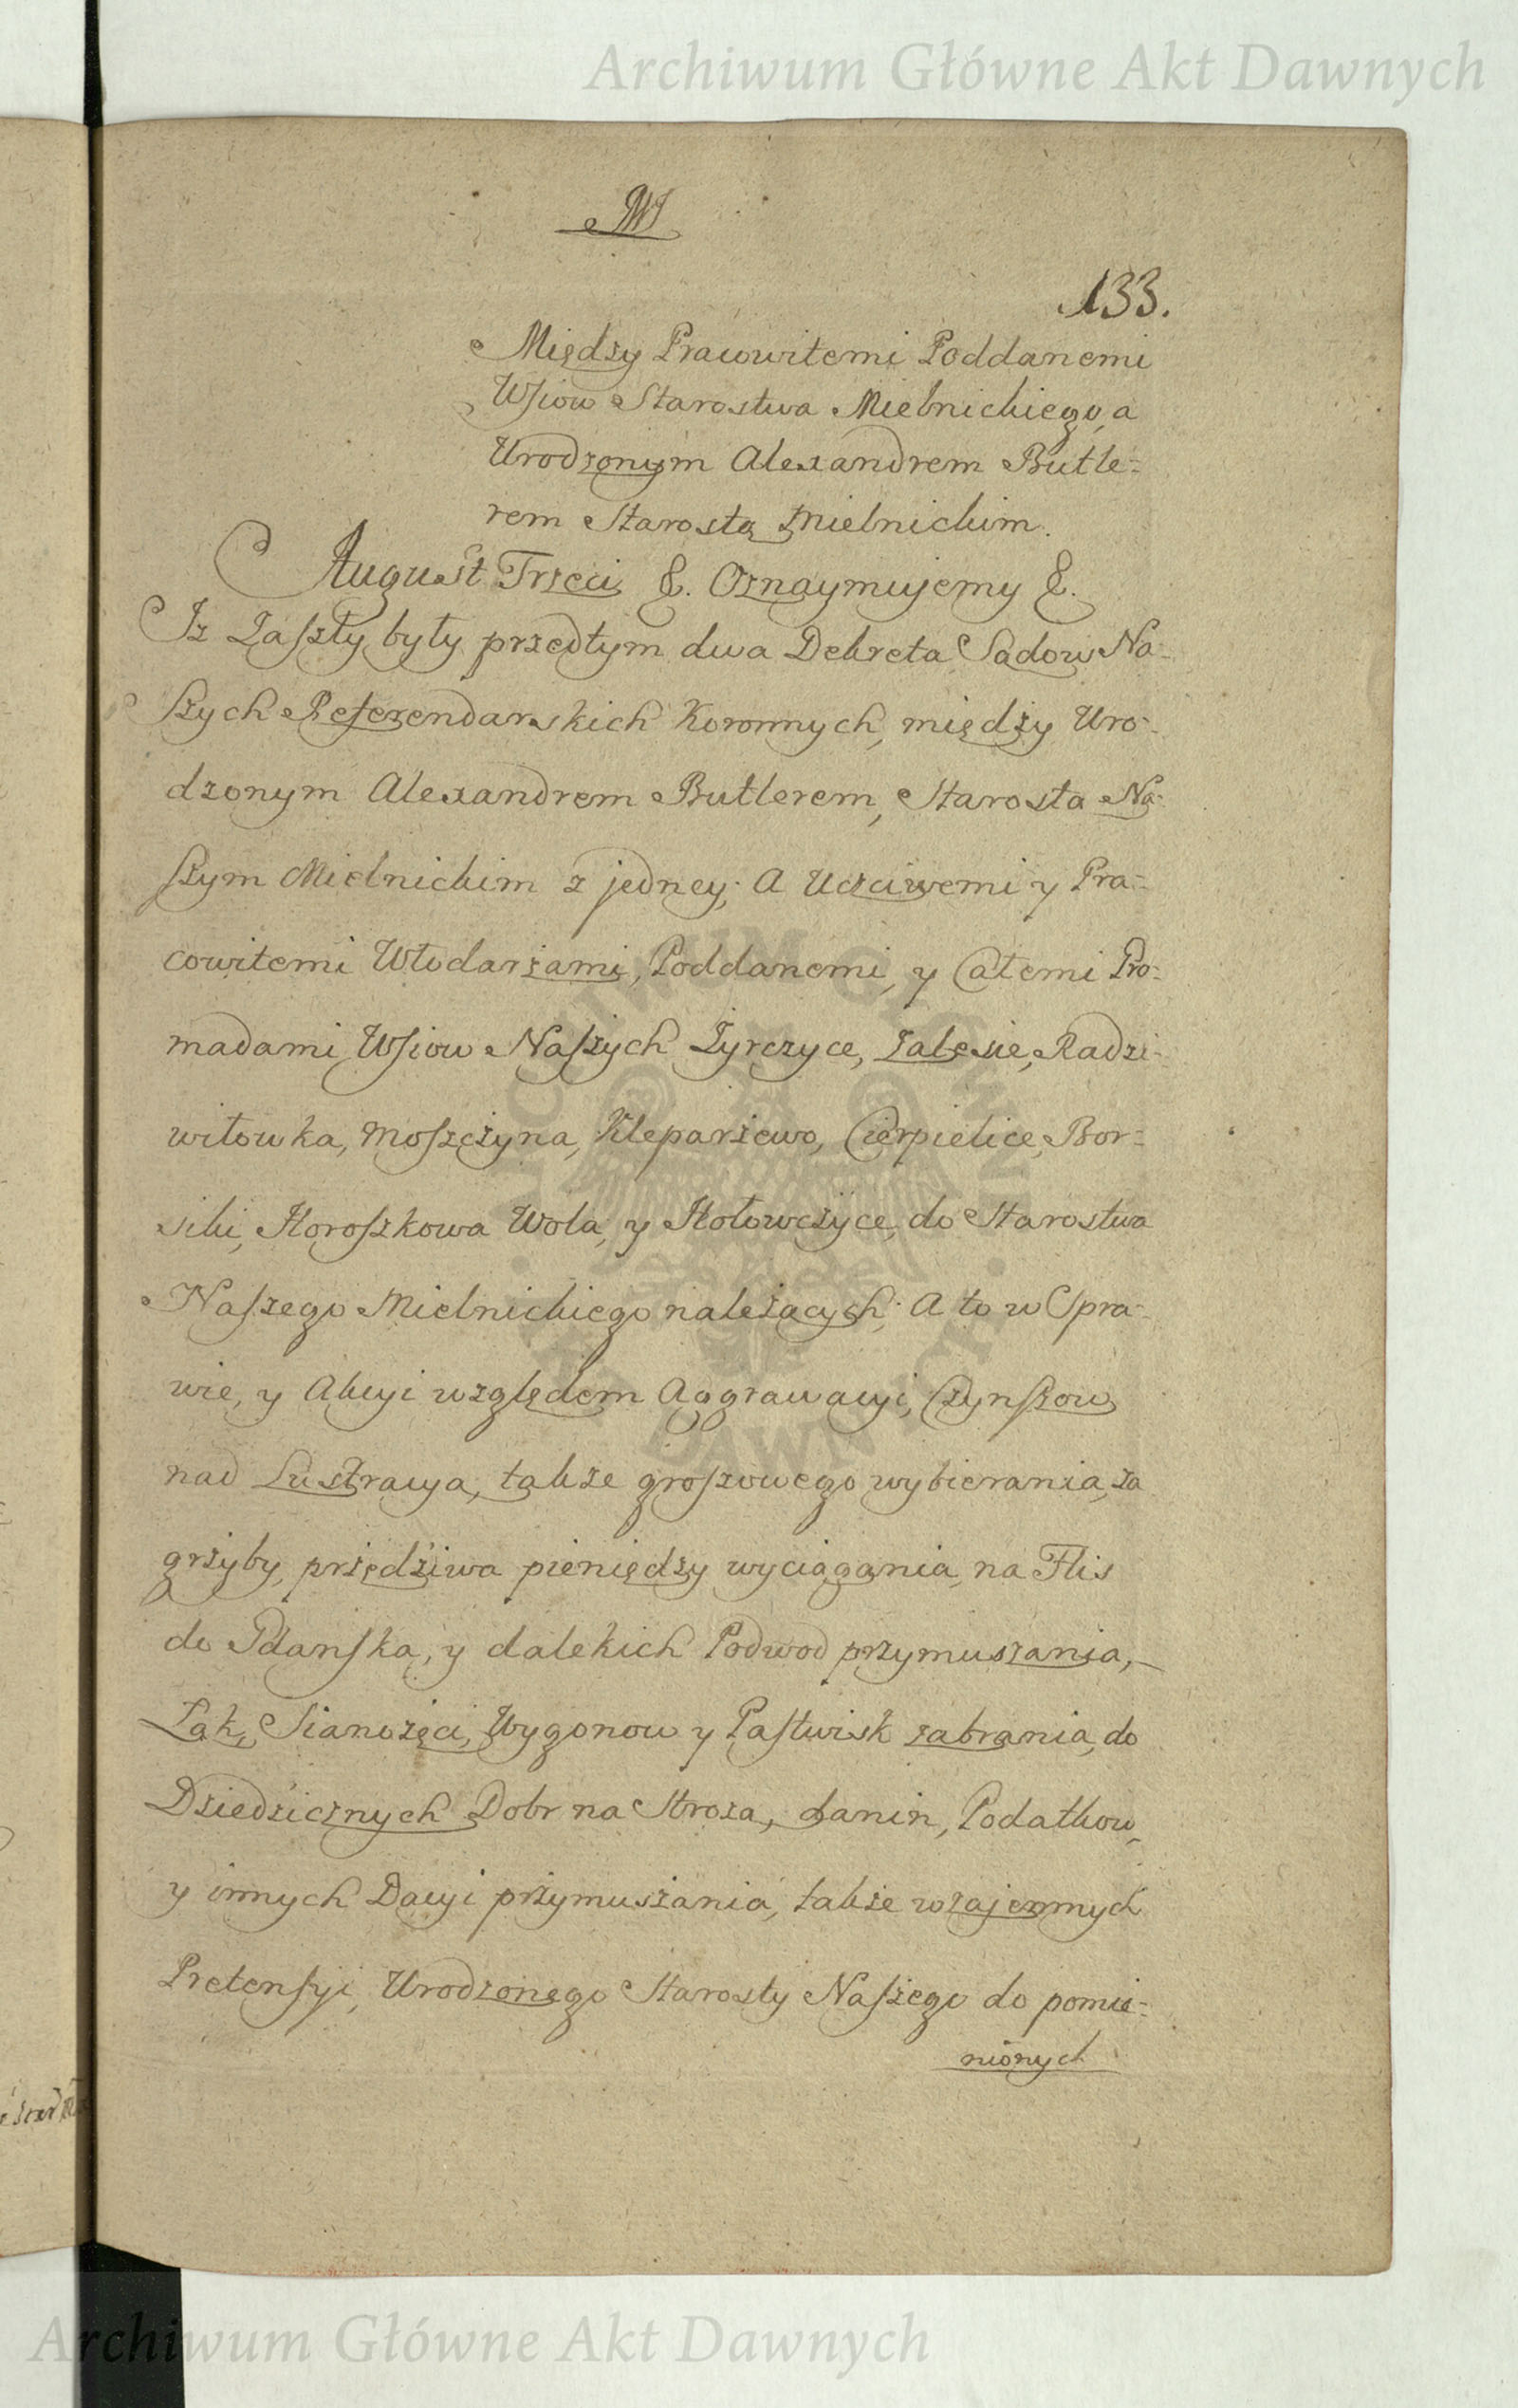 Archiwum Główne Akt Dawnych
M
133.
Między Pracowitemi Poddanemi
Wsiow Starostwa Mielnickiego, a
Urodzonym Alexandrem Butle=
rem Starostą Mielnickim.
August Trzeci &. Oznaymujemy &.
Iz Zaszły były przedtym dwa Dekreta Sadow Na=
szych Referendarskich Koronnych, między Uro=
dzonym Alexandrem Butlerem, Starosta Na=
szym Mielnickim z jedney; A Uczciwemi y Pra=
cowitemi Włodarzami, Poddanemi, y Całemi Gro=
madami Wsiow Naszych Zyrczyce, Zalesie, Radzi=
wiłowka, Moszczyna, Kleparzewo, Cierpielice, Bor=
siki, Horoszkowa Wola, y Hołowczyce, do Starostwa
Naszego Mielnickiego należących; A to w Spra=
wie, y Akcyi względem Aggrawacyi, Czynszow
nad Lustracya, także groszowego wybierania, za
grzyby, przędziwa pieniędzy wyciągania, na Flis
do Gdanska, y dalekich Podwod przymuszania,
Łąk, Sianożęci, Wygonow y Pastwisk zabrania, do
Dziedzicznych Dobr na Stroza, Danin, Podatkow,
y innych Dacyi przymuszania, także wzajemnych
Pretensyi, Urodzonego Starosty Naszego do pomie=
nionych
Archiwum Główne Akt Dawnych